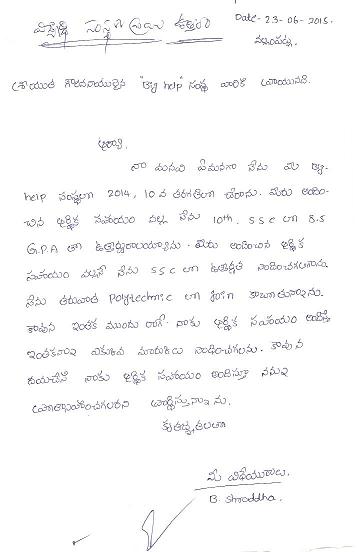 Date - 23-06-2015.
నల్లపాడు.
శ్రీయుత గౌరవనీయులైన "By help" సంస్థ వారికి వ్రాయునది.
అయ్యా,
నా మనవి ఏమనగా నేను మీ By
help సంస్థలో 2014, 10 వ తరగతిలో చేరాను. మీరు అందిం-
చిన ఆర్థిక సహాయం వల్ల నేను 10th, SSC లో 8.5
G.P.A తో ఉత్తీర్ణురాలయ్యాను. మీరు అందించిన ఆర్థిక
సహాయం వల్లనే నేను SSC లో ఉత్తీర్ణత సాధించగలిగాను.
నేను తరువాత Polytechnic లో join కాబోతున్నాను.
కావున ఇంతక ముందు లాగే నాకు ఆర్థిక సహాయం అందిస్తే
ఇంతకన్నా ఎక్కువ మార్కులు సాధించగలను. కావున
దయచేసి నాకు ఆర్థిక సహాయం అందిస్తూ నన్ను
ప్రోత్సాహించగలరని ప్రార్థిస్తున్నాను.
కృతజ్ఞతలతో
మీ విధేయురాలు.
B. Shraddha.